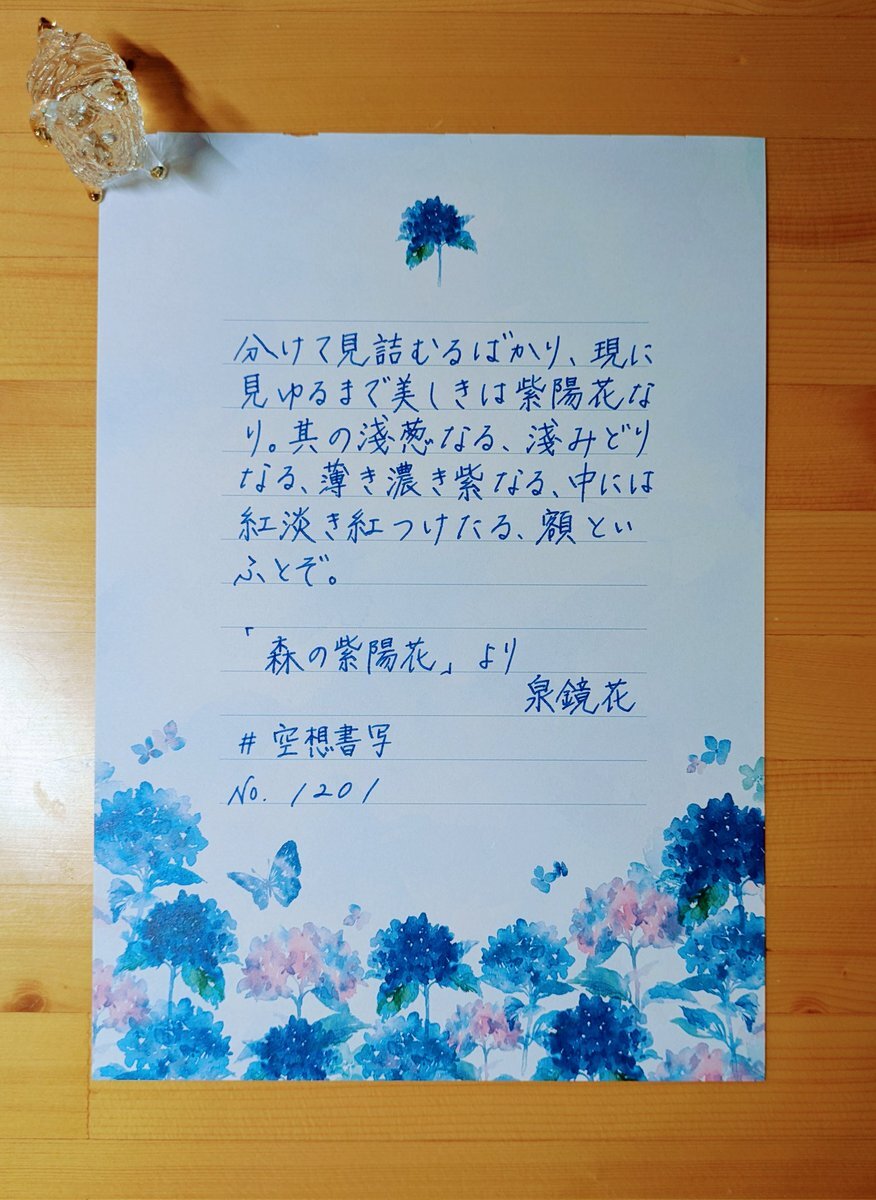 分けて見詰むるばかり、現に
見ゆるまで美しきは紫陽花な
り。其の淺葱なる、淺みどり
なる、薄き濃き紫なる、中には
紅淡き紅つけたる、額とい
ふとぞ。
「森の紫陽花」より
泉鏡花
#空想書写
No. 1201